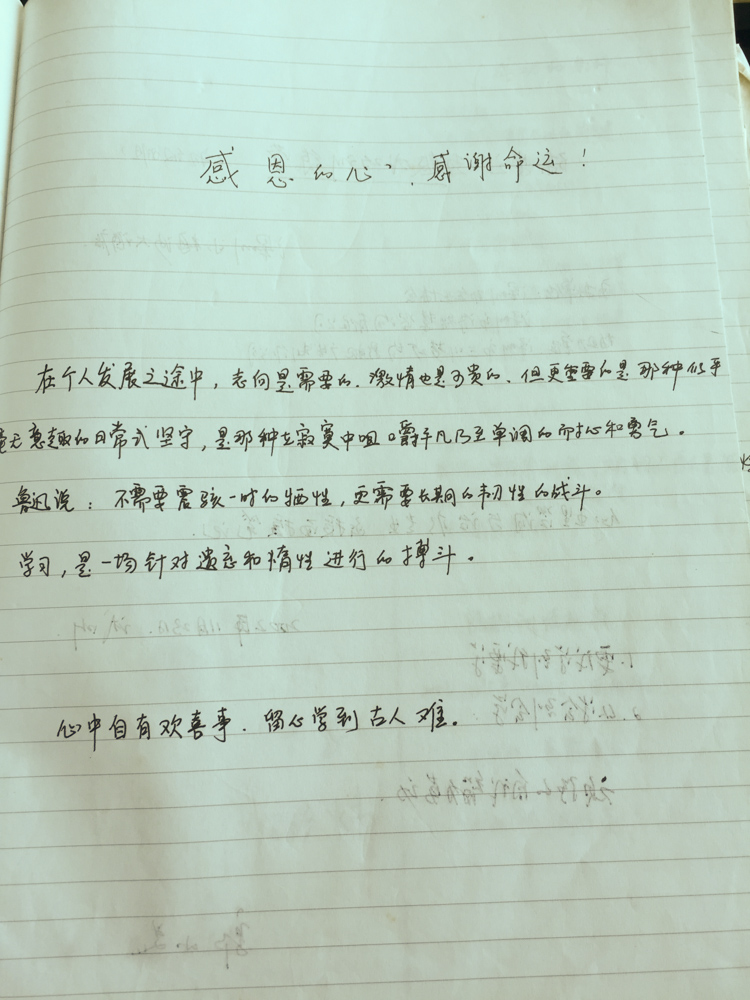 感恩的心，感谢命运！
在个人发展之途中，志向是需要的、激情也是可贵的、但更重要的是那种似乎
毫无意趣的日常式坚守，是那种在寂寞中咀嚼平凡乃至单调的耐心和勇气。
鲁迅说：不需要震骇一时的牺性，更需要长期的韧性的战斗。
学习，是一场针对遗忘和惰性进行的搏斗。
心中自有欢喜事．留心学到古人难。